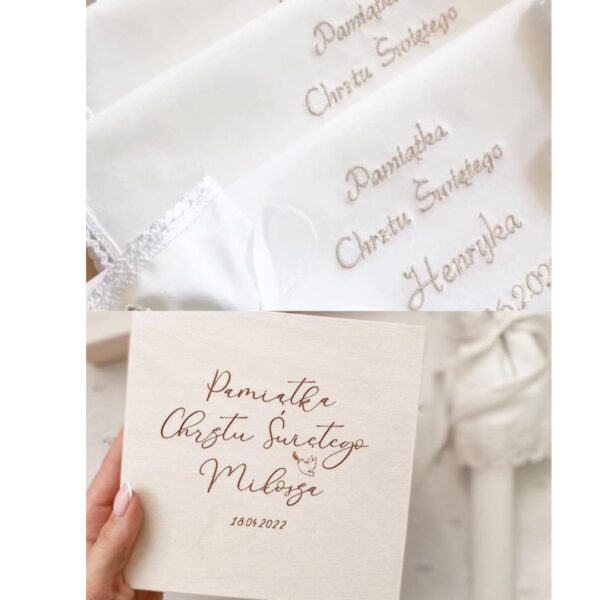 Pamiątka
Chrztu Świętego
Pamiątka
Chrztu Świętego
Henryka
Pamiątka
Chrztu Świętego
Miłosza
18.04.2022